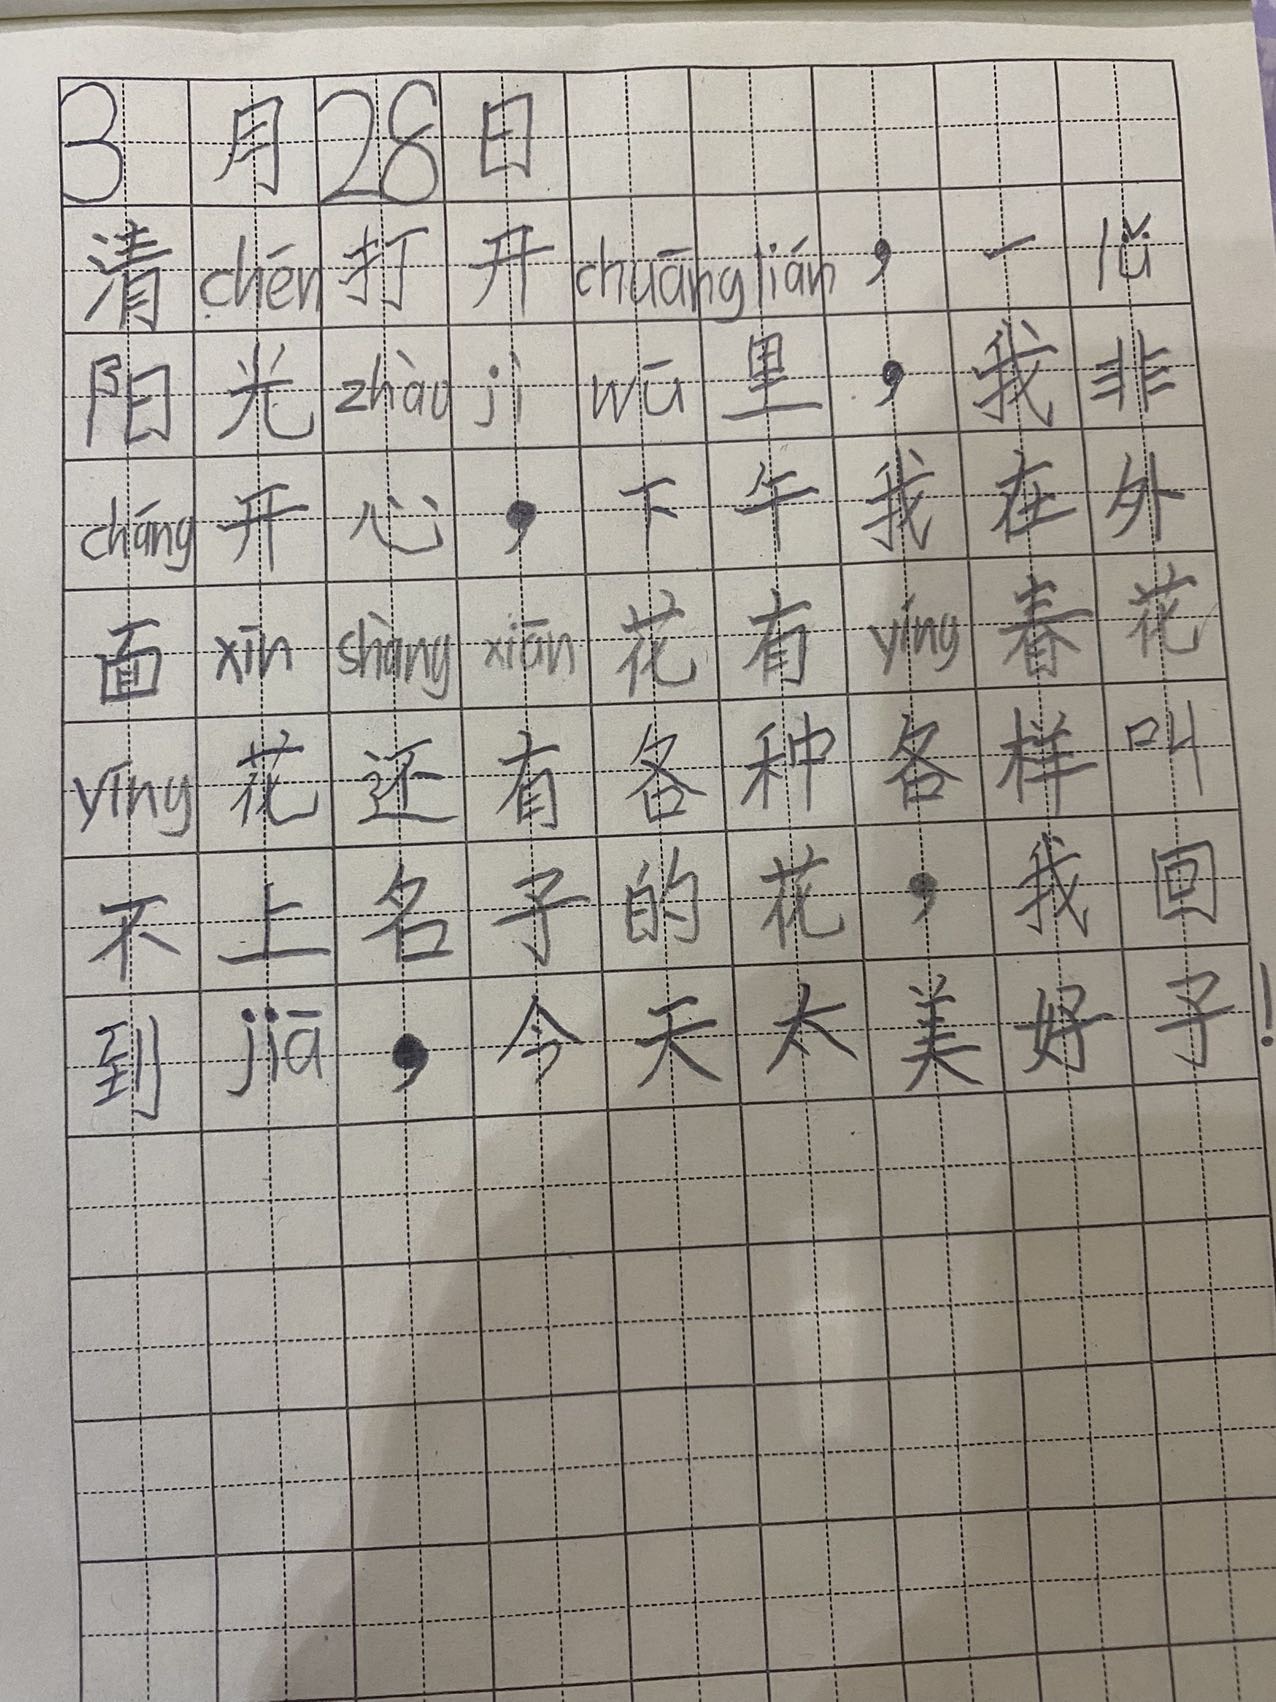 3月28日
清chén打开chuānglián，一lǚ
阳光zhàojìwū里，我非
cháng开心，下午我在外
面xīnshàngxiān花有yíng春花
yīng花还有各种各样叫
不上名子的花，我回
到jiā，今天太美好子！